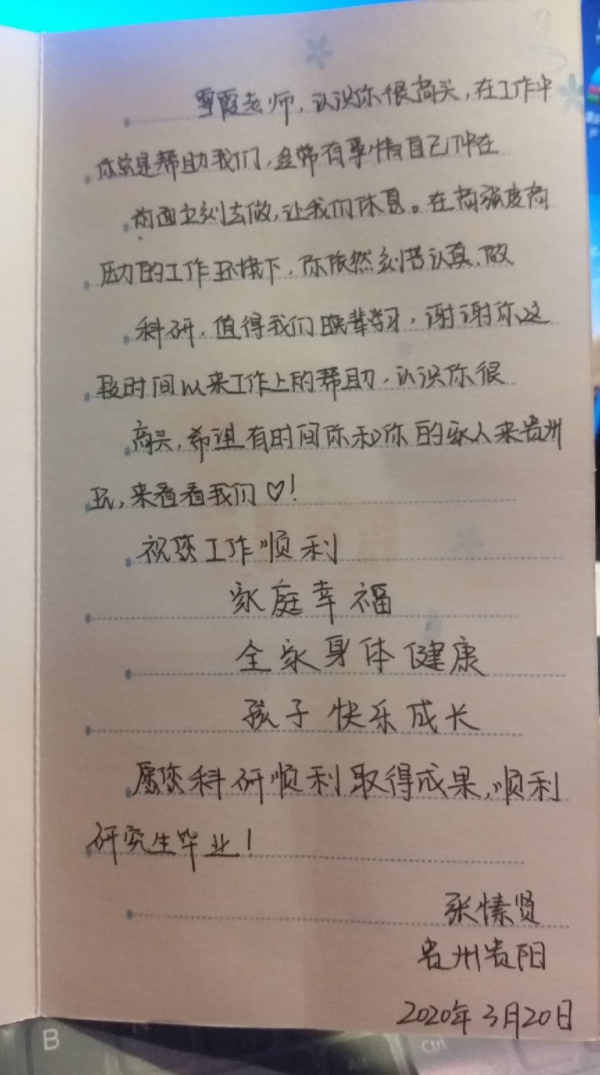 雪霞老师，认识你很高兴，在工作中
你总是帮助我们，经常有事情自己冲在
前面立刻去做，让我们休息。在高强度高
压力的工作环境下，你依然刻苦认真，做
科研，值得我们晚辈学习，谢谢你这
段时间以来工作上的帮助，认识你很
高兴，希望有时间你和你的家人来贵州
玩，来看看我们♡！
祝您工作顺利
家庭幸福
全家身体健康
孩子快乐成长
愿您科研顺利取得成果，顺利
研究生毕业！
张愫贤
贵州贵阳
2020年3月20日
B
Alt
Ctrl